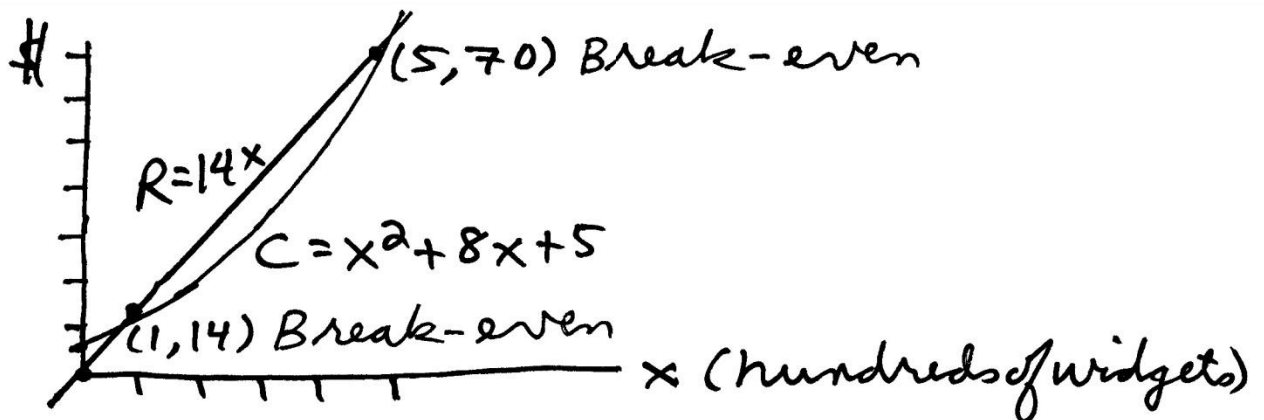 $
(5,70) Break-even
R=14x
C=x²+8x+5
(1,14) Break-even
x (hundreds of widgets)